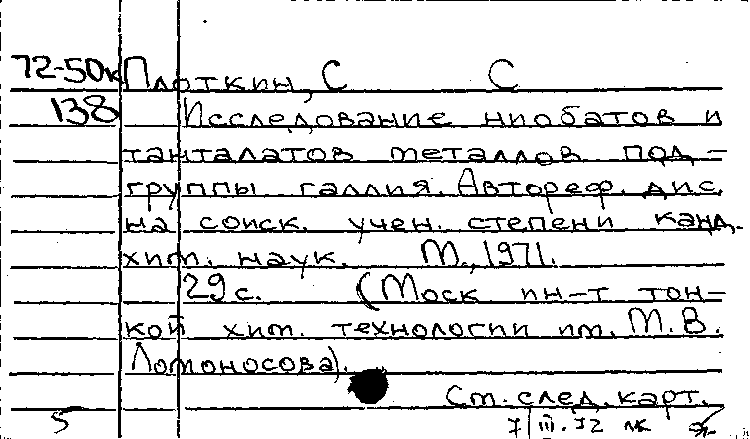 72-50к Плоткин, С С
138 Исследование ниобатов и
танталатов металлов под-
группы галлия. Автореф. дис.
на соиск. учен. степени канд.
хим. наук. М., 1971.
29 с. (Моск ин-т тон-
кой хим. технологии им. М. В.
Ломоносова).
См. след. карт.
5 7/III.72